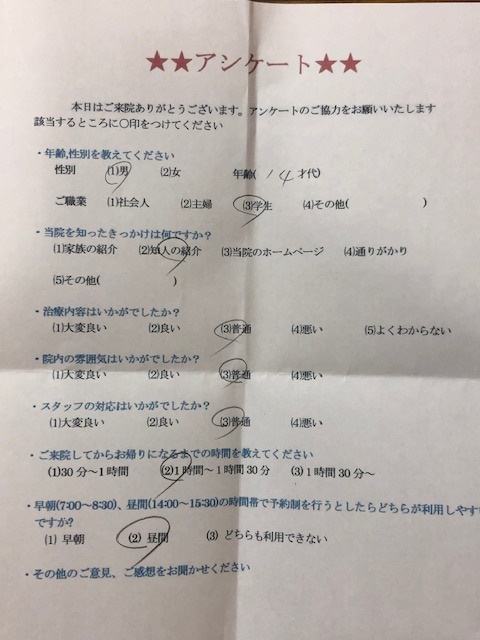 ★★アンケート★★
本日はご来院ありがとうございます。アンケートのご協力をお願いいたします
該当するところに〇印をつけてください
・年齢,性別を教えてください
性別 (1)男 (2)女 年齢( 14 才代)
ご職業 (1)社会人 (2)主婦 (3)学生 (4)その他( )
・当院を知ったきっかけは何ですか?
(1)家族の紹介 (2)知人の紹介 (3)当院のホームページ (4)通りがかり
(5)その他( )
・治療内容はいかがでしたか?
(1)大変良い (2)良い (3)普通 (4)悪い (5)よくわからない
・院内の雰囲気はいかがでしたか?
(1)大変良い (2)良い (3)普通 (4)悪い
・スタッフの対応はいかがでしたか?
(1)大変良い (2)良い (3)普通 (4)悪い
・ご来院してからお帰りになるまでの時間を教えてください
(1)30分〜1時間 (2)1時間〜1時間30分 (3)1時間30分〜
・早朝(7:00〜8:30)、昼間(14:00〜15:30)の時間帯で予約制を行うとしたらどちらが利用しやすい
ですか?
(1) 早朝 (2) 昼間 (3) どちらも利用できない
・その他のご意見、ご感想をお聞かせください